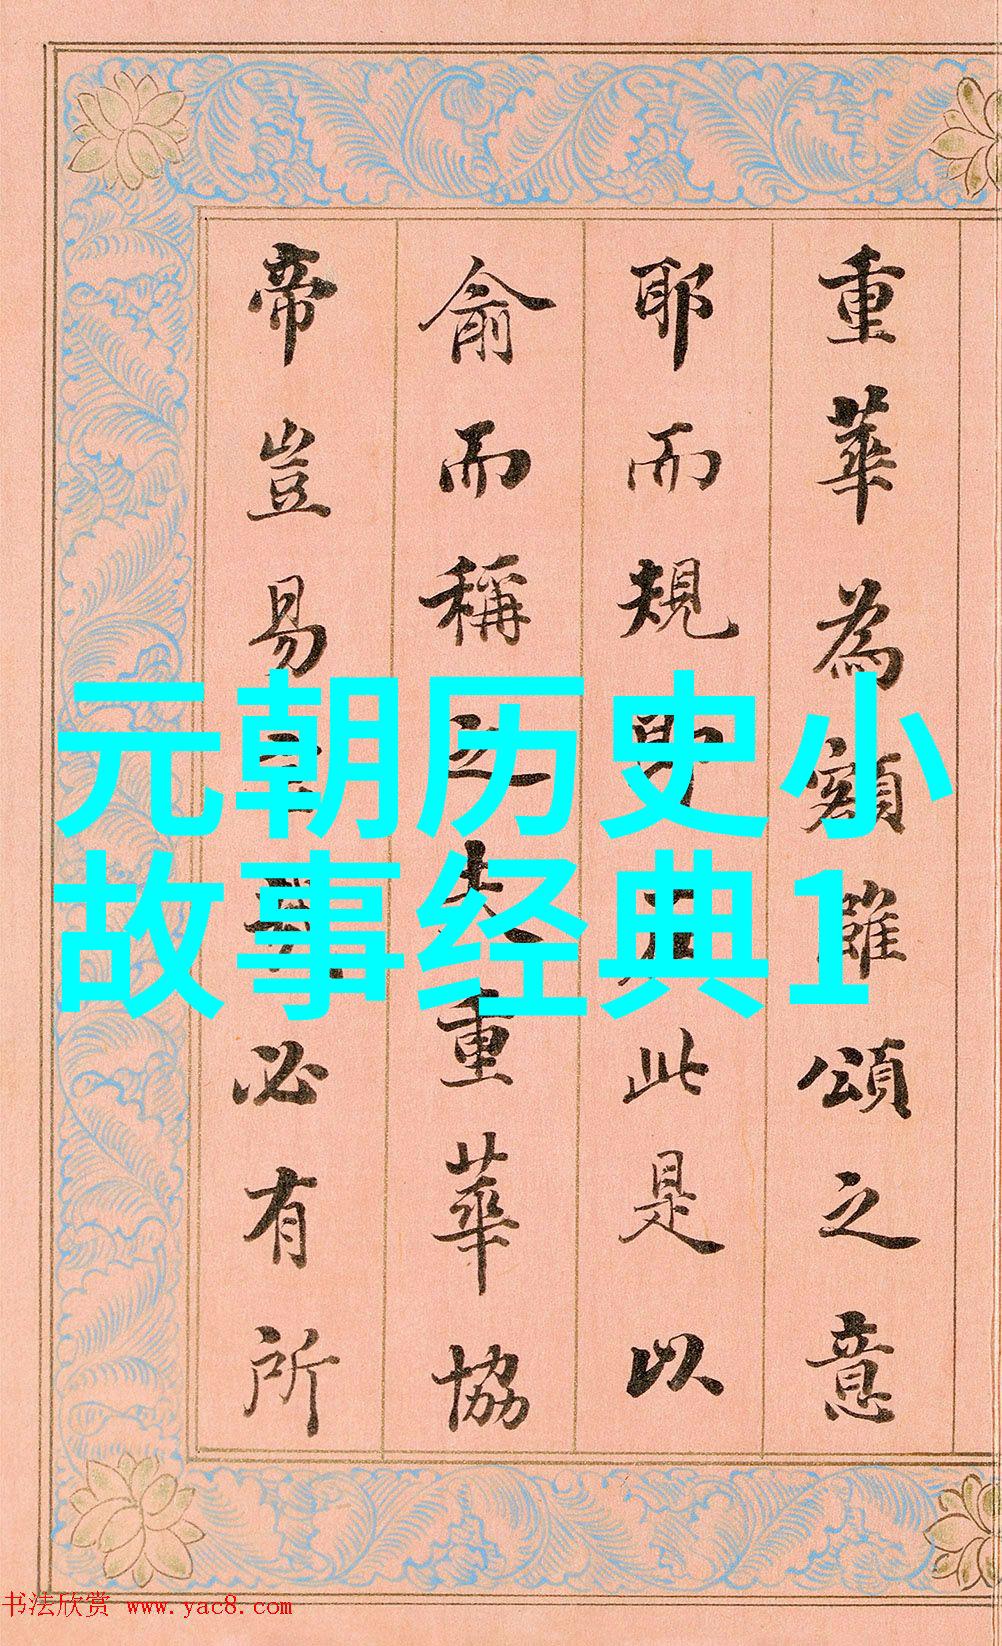 重華為額雖頌之意
耶而規此是以
俞而稱之夫重華協
帝豈易必有所
元朝历史小
故事经典1
书法欣赏 www.yac8.com